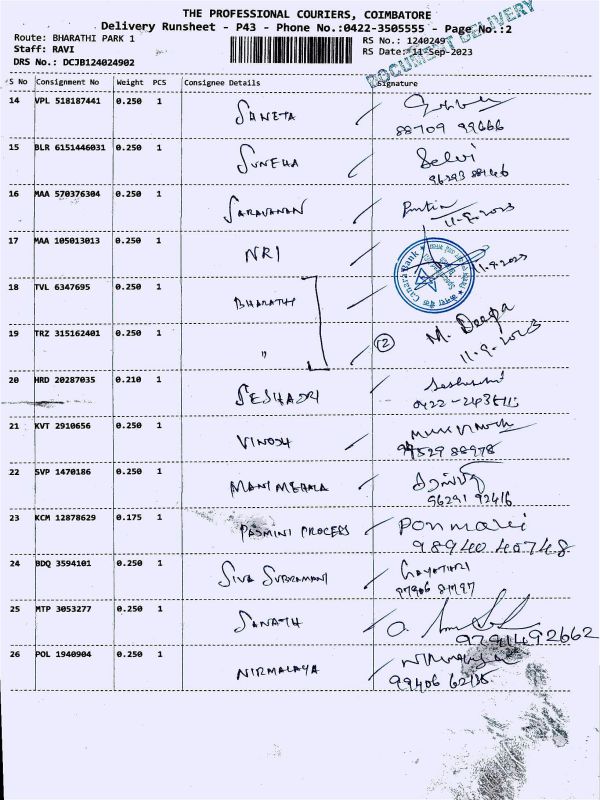 THE PROFESSIONAL COURIERS, COIMBATORE
Delivery Runsheet - P43 - Phone No.:0422-3505555 - Page No.:2
DOCUMENT DELIVERY
Route: BHARATHI PARK 1
RS No.: 1240249
Staff: RAVI
RS Date: 11-Sep-2023
DRS No.: DCJB124024902
S No Consignment No Weight PCS Consignee Details Signature
14 VPL 518187441 0.250 1 SANETA
88709 99666
15 BLR 6151446031 0.250 1 SUNEHA Selvi
96293 88146
16 MAA 570376304 0.250 1 SARAVANAN
11-9-2023
17 MAA 105013013 0.250 1 NRI
Canara Bank
11.9.2023
18 TVL 6347695 0.250 1 BHARATHI
19 TRZ 315162401 0.250 1 " (2) M. Deepa
11-9-2023
20 HRD 20287035 0.210 1 SESHADRI
0422-2435111
21 KVT 2910656 0.250 1 VINODH
99529 88978
22 SVP 1470186 0.250 1 MANIMEHALA
96291 92416
23 KCM 12878629 0.175 1 PADMINI PROCERS Ponmalei
98940 40748
24 BDQ 3594101 0.250 1 SIVA SUBRAMANI Gayathri
25 MTP 3053277 0.250 1 SANATH
9791492662
26 POL 1940904 0.250 1 NIRMALAYA
99406 62135